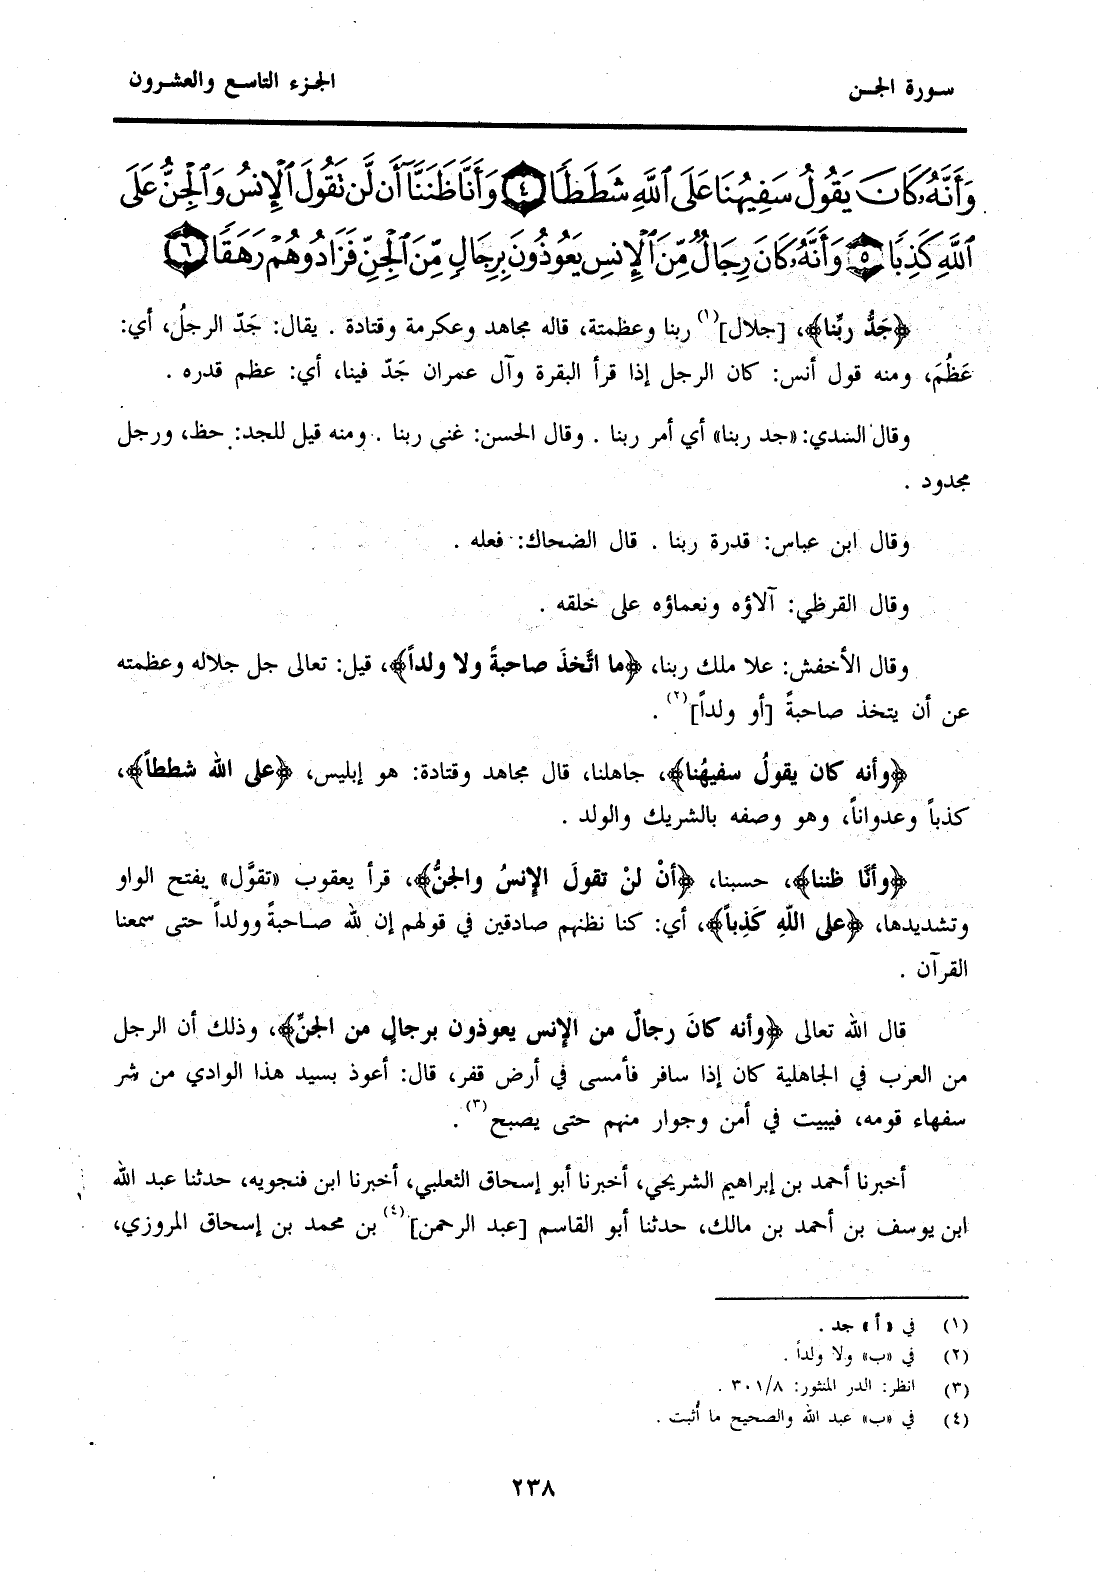 سورة الجن
الجزء التاسع والعشرون
وَأَنَّهُۥ كَانَ يَقُولُ سَفِيهُنَا عَلَى ٱللَّهِ شَطَطًا ٤ وَأَنَّا ظَنَنَّآ أَن لَّن تَقُولَ ٱلْإِنسُ وَٱلْجِنُّ عَلَى
ٱللَّهِ كَذِبًا ٥ وَأَنَّهُۥ كَانَ رِجَالٌ مِّنَ ٱلْإِنسِ يَعُوذُونَ بِرِجَالٍ مِّنَ ٱلْجِنِّ فَزَادُوهُمْ رَهَقًا ٦
﴿جَدُّ ربِّنا﴾، [جلال](١) ربنا وعظمتة، قاله مجاهد وعكرمة وقتادة . يقال: جَدّ الرجلُ، أي:
عَظُمَ، ومنه قول أنس: كان الرجل إذا قرأ البقرة وآل عمران جَدّ فينا، أي: عظم قدره .
وقال السدي: «جد ربنا» أي أمر ربنا . وقال الحسن: غنى ربنا . ومنه قيل للجد: حظ، ورجل
مجدود .
وقال ابن عباس: قدرة ربنا . قال الضحاك: فعله .
وقال القرظي: آلاؤه ونعماؤه على خلقه .
وقال الأخفش: علا ملك ربنا، ﴿ما اتَّخذَ صاحبةً ولا ولداً﴾، قيل: تعالى جل جلاله وعظمته
عن أن يتخذ صاحبةً [أو ولداً](٢) .
﴿وأنه كان يقولُ سفيهُنا﴾، جاهلنا، قال مجاهد وقتادة: هو إبليس، ﴿على الله شططاً﴾،
كذباً وعدواناً، وهو وصفه بالشريك والولد .
﴿وأنَّا ظننا﴾، حسبنا، ﴿أنْ لنْ تقولَ الإنسُ والجنُّ﴾، قرأ يعقوب «تقوَّل» يفتح الواو
وتشديدها، ﴿على اللّهِ كَذِباً﴾، أي: كنا نظنهم صادقين في قولهم إن لله صاحبةً وولداً حتى سمعنا
القرآن .
قال الله تعالى ﴿وأنه كانَ رجالٌ من الإنس يعوذون برجالٍ من الجنِّ﴾، وذلك أن الرجل
من العرب في الجاهلية كان إذا سافر فأمسى في أرض قفر، قال: أعوذ بسيد هذا الوادي من شر
سفهاء قومه، فيبيت في أمن وجوار منهم حتى يصبح(٣) .
أخبرنا أحمد بن إبراهيم الشريحي، أخبرنا أبو إسحاق الثعلبي، أخبرنا ابن فنجويه، حدثنا عبد الله
ابن يوسف بن أحمد بن مالك، حدثنا أبو القاسم [عبد الرحمن](٤) بن محمد بن إسحاق المروزي،
(١) في «أ» جد .
(٢) في «ب» ولا ولداً .
(٣) انظر: الدر المنثور: ٣٠١/٨ .
(٤) في «ب» عبد الله والصحيح ما أُثبت .
٢٣٨